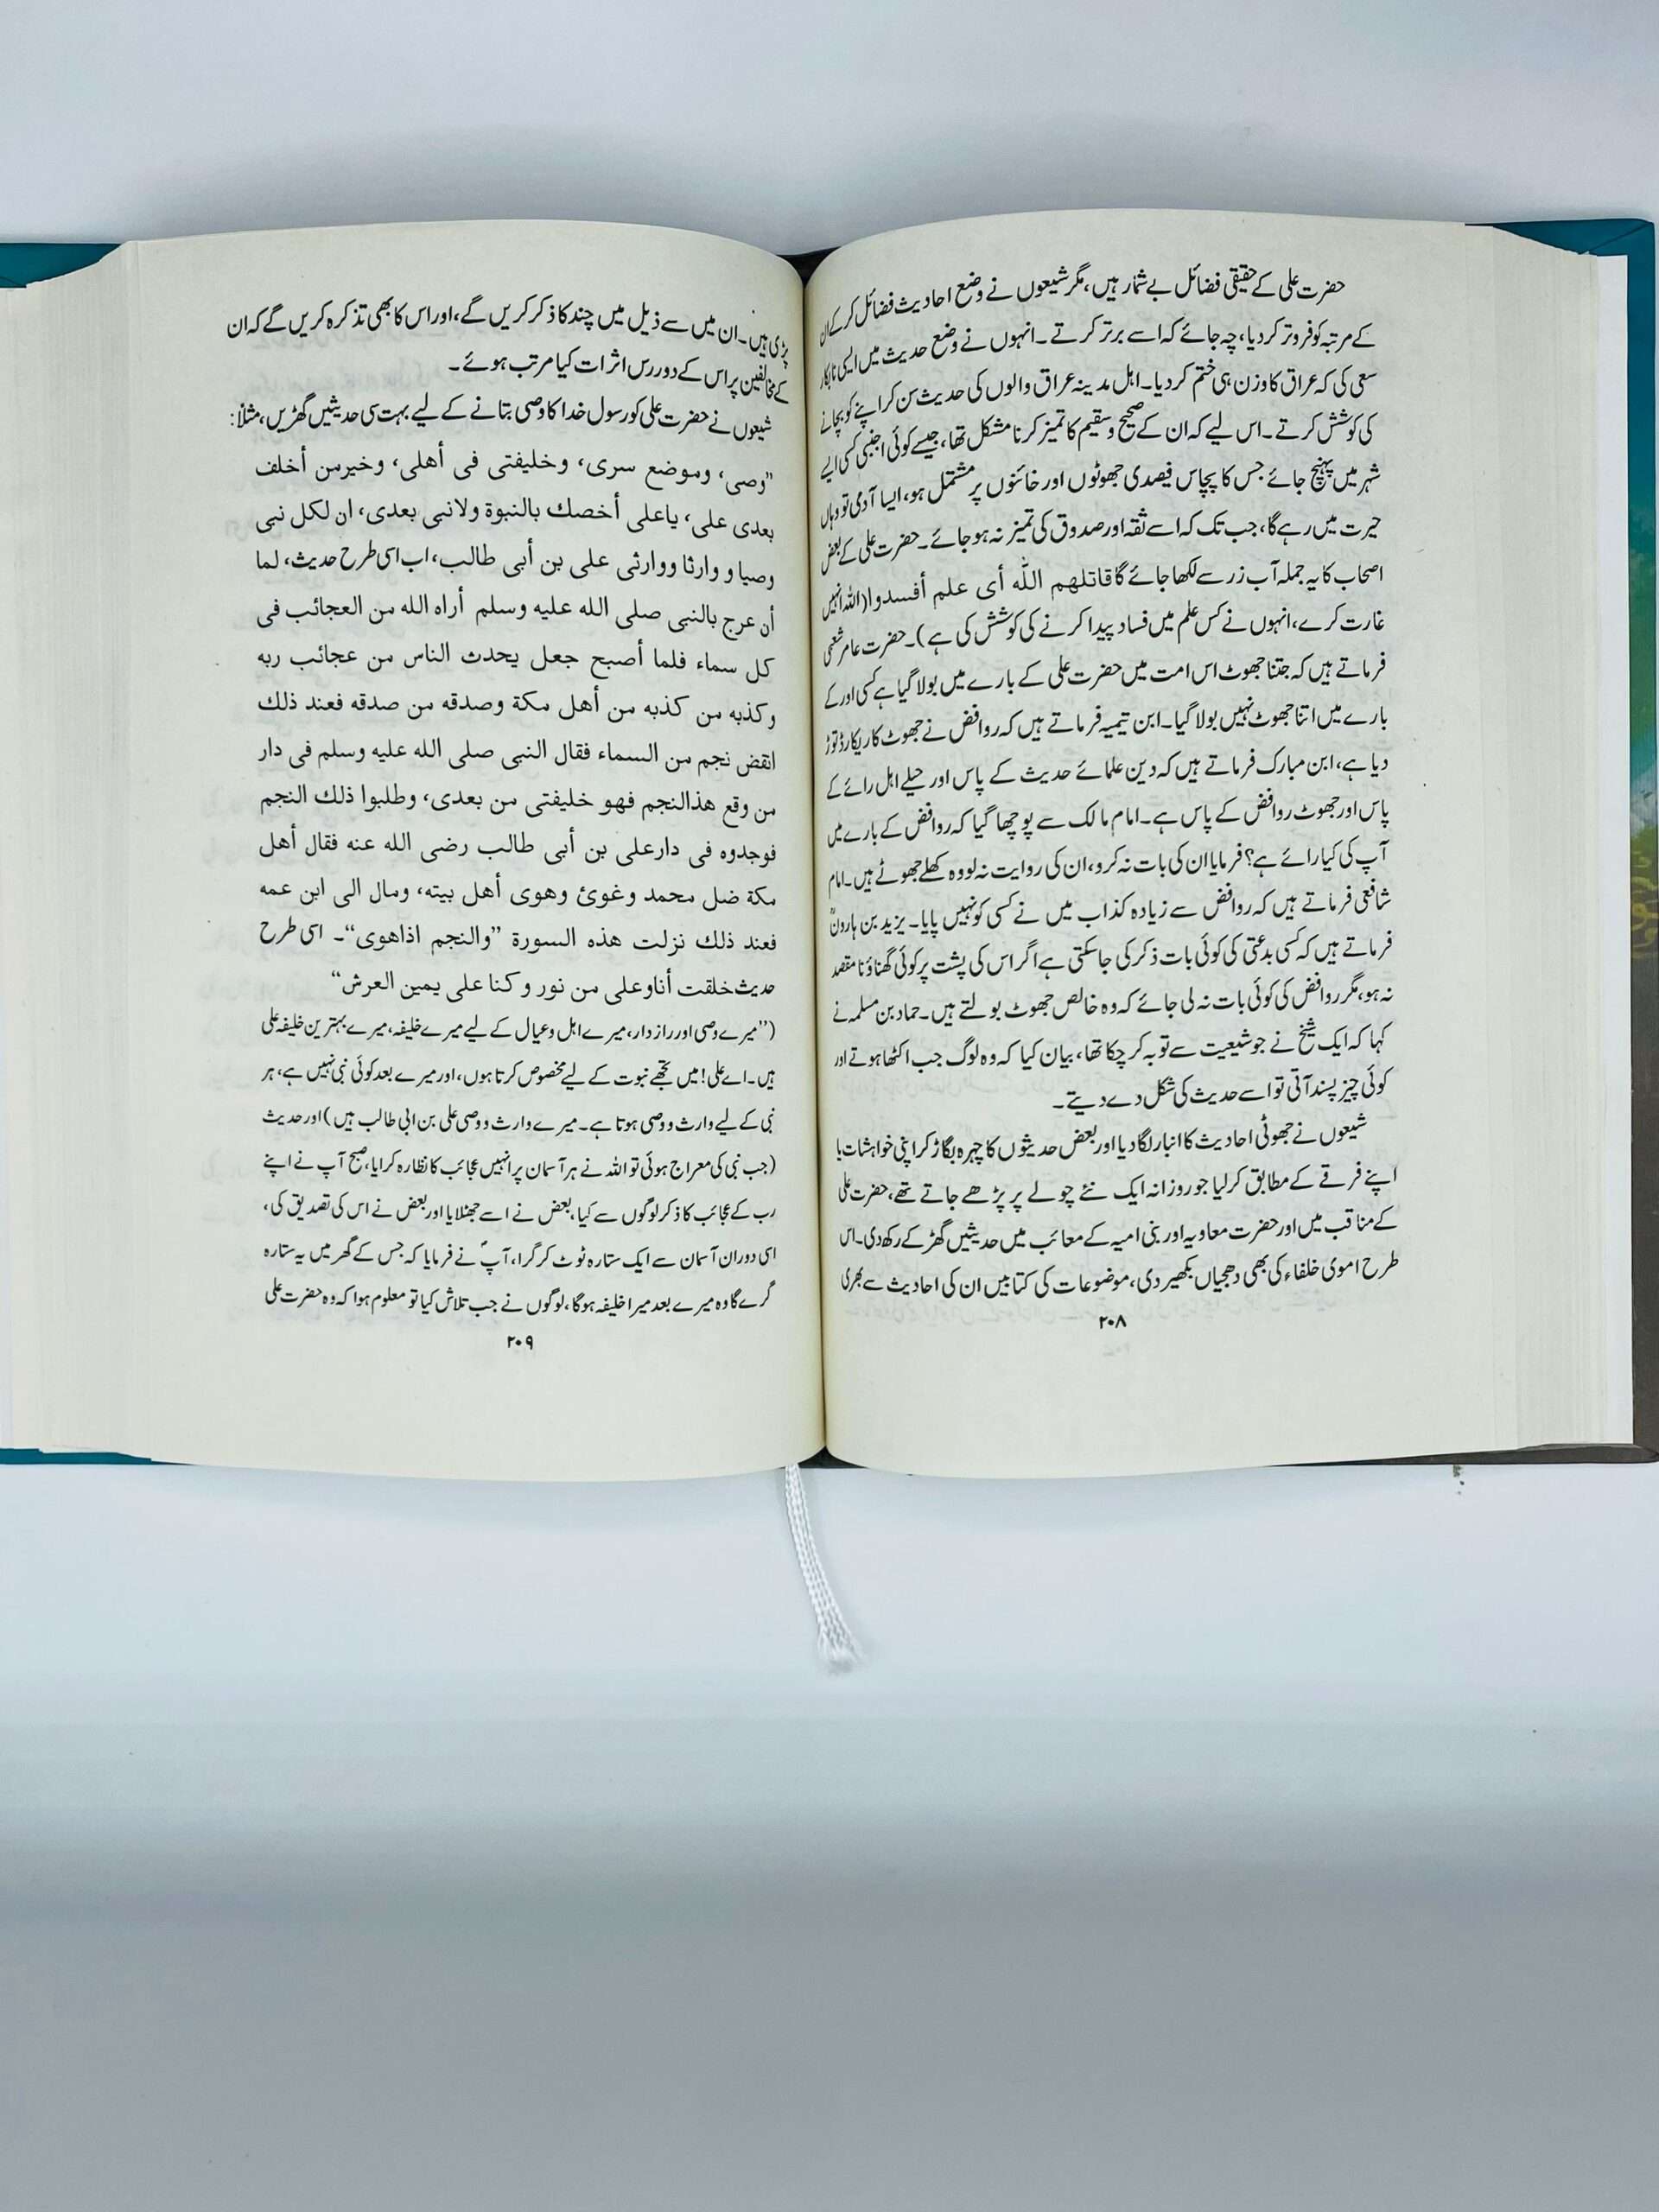 حضرت علی کے حقیقی فضائل بے شمار ہیں، مگر شیعوں نے وضع احادیث فضائل کر کے ان
کے مرتبہ کو فروتر کر دیا، چہ جائے کہ اسے برتر کرتے۔ انہوں نے وضع حدیث میں ایسی نابکار
سعی کی کہ عراق کا وزن ہی ختم کر دیا۔ اہل مدینہ عراق والوں کی حدیث سن کر اپنے کو بچانے
کی کوشش کرتے۔ اس لیے کہ ان کے صحیح و سقیم کا تمیز کرنا مشکل تھا، جیسے کوئی اجنبی کسی ایسے
شہر میں پہنچ جائے جس کا پچاس فیصدی جھوٹوں اور خائنوں پر مشتمل ہو، ایسا آدمی تو وہاں
حیرت میں رہے گا، جب تک کہ اسے ثقہ اور صدوق کی تمیز نہ ہو جائے۔ حضرت علی کے بعض
اصحاب کا یہ جملہ آب زر سے لکھا جائے گا قاتلهم الله أى علم أفسدوا (اللہ انہیں
غارت کرے، انہوں نے کس علم میں فساد پیدا کرنے کی کوشش کی ہے)۔ حضرت عامر شعبی
فرماتے ہیں کہ جتنا جھوٹ اس امت میں حضرت علی کے بارے میں بولا گیا ہے کسی اور کے
بارے میں اتنا جھوٹ نہیں بولا گیا۔ ابن تیمیہ فرماتے ہیں کہ روافض نے جھوٹ کا ریکارڈ توڑ
دیا ہے، ابن مبارک فرماتے ہیں کہ دین علمائے حدیث کے پاس اور حیلے اہل رائے کے
پاس اور جھوٹ روافض کے پاس ہے۔ امام مالک سے پوچھا گیا کہ روافض کے بارے میں
آپ کی کیا رائے ہے؟ فرمایا ان کی بات نہ کرو، ان کی روایت نہ لو وہ کھلے جھوٹے ہیں۔ امام
شافعی فرماتے ہیں کہ روافض سے زیادہ کذاب میں نے کسی کو نہیں پایا۔ یزید بن ہارونؒ
فرماتے ہیں کہ کسی بدعتی کی کوئی بات ذکر کی جا سکتی ہے اگر اس کی پشت پر کوئی گھناؤنا مقصد
نہ ہو، مگر روافض کی کوئی بات نہ لی جائے کہ وہ خالص جھوٹ بولتے ہیں۔ حماد بن سلمہ نے
کہا کہ ایک شیخ نے جو شیعیت سے توبہ کر چکا تھا، بیان کیا کہ وہ لوگ جب اکٹھا ہوتے اور
کوئی چیز پسند آتی تو اسے حدیث کی شکل دے دیتے۔
شیعوں نے جھوٹی احادیث کا انبار لگا دیا اور بعض حدیثوں کا چہرہ بگاڑ کر اپنی خواہشات یا
اپنے فرقے کے مطابق کر لیا جو روزانہ ایک نئے چولے پر پڑھے جاتے تھے، حضرت علی
کے مناقب میں اور حضرت معاویہ اور بنی امیہ کے معائب میں حدیثیں گھڑ کے رکھ دی۔ اس
طرح اموی خلفاء کی بھی دھجیاں بکھیر دی، موضوعات کی کتابیں ان کی احادیث سے بھری
۲۰۸
پڑی ہیں۔ ان میں سے ذیل میں چند کا ذکر کریں گے، اور اس کا بھی تذکرہ کریں گے کہ ان
کے مخالفین پر اس کے دور رس اثرات کیا مرتب ہوئے۔
شیعوں نے حضرت علی کو رسول خدا کا وصی بتانے کے لیے بہت سی حدیثیں گھڑیں، مثلاً:
”وصی، وموضع سری، وخلیفتی فی أهلی، وخیرمن أخلف
بعدی علی، یاعلی أخصك بالنبوة ولانبی بعدی، ان لکل نبی
وصیا و وارثا ووارثی علی بن أبی طالب، اب اسی طرح حدیث، لما
أن عرج بالنبی صلی الله علیه وسلم أراه الله من العجائب فی
کل سماء فلما أصبح جعل یحدث الناس من عجائب ربه
وکذبه من کذبه من أهل مکة وصدقه من صدقه فعند ذلك
انقض نجم من السماء فقال النبی صلی الله علیه وسلم فی دار
من وقع هذالنجم فهو خلیفتی من بعدی، وطلبوا ذلك النجم
فوجدوه فی دارعلی بن أبی طالب رضی الله عنه فقال أهل
مکة ضل محمد وغویٰ وهوی أهل بیته، ومال الی ابن عمه
فعند ذلك نزلت هذه السورة ”والنجم اذاهوی“۔ اسی طرح
حدیث خلقت أناوعلی من نور وکنا علی یمین العرش“
(”میرے وصی اور راز دار، میرے اہل وعیال کے لیے میرے خلیفہ، میرے بہترین خلیفہ علی
ہیں۔ اے علی! میں تجھے نبوت کے لیے مخصوص کرتا ہوں، اور میرے بعد کوئی نبی نہیں ہے، ہر
نبی کے لیے وارث و وصی ہوتا ہے۔ میرے وارث و وصی علی بن ابی طالب ہیں) اور حدیث
(جب نبی کی معراج ہوئی تو اللہ نے ہر آسمان پر انہیں عجائب کا نظارہ کرایا، صبح آپ نے اپنے
رب کے عجائب کا ذکر لوگوں سے کیا، بعض نے اسے جھٹلایا اور بعض نے اس کی تصدیق کی،
اسی دوران آسمان سے ایک ستارہ ٹوٹ کر گرا، آپؐ نے فرمایا کہ جس کے گھر میں یہ ستارہ
گرے گا وہ میرے بعد میرا خلیفہ ہوگا، لوگوں نے جب تلاش کیا تو معلوم ہوا کہ وہ حضرت علی
۲۰۹